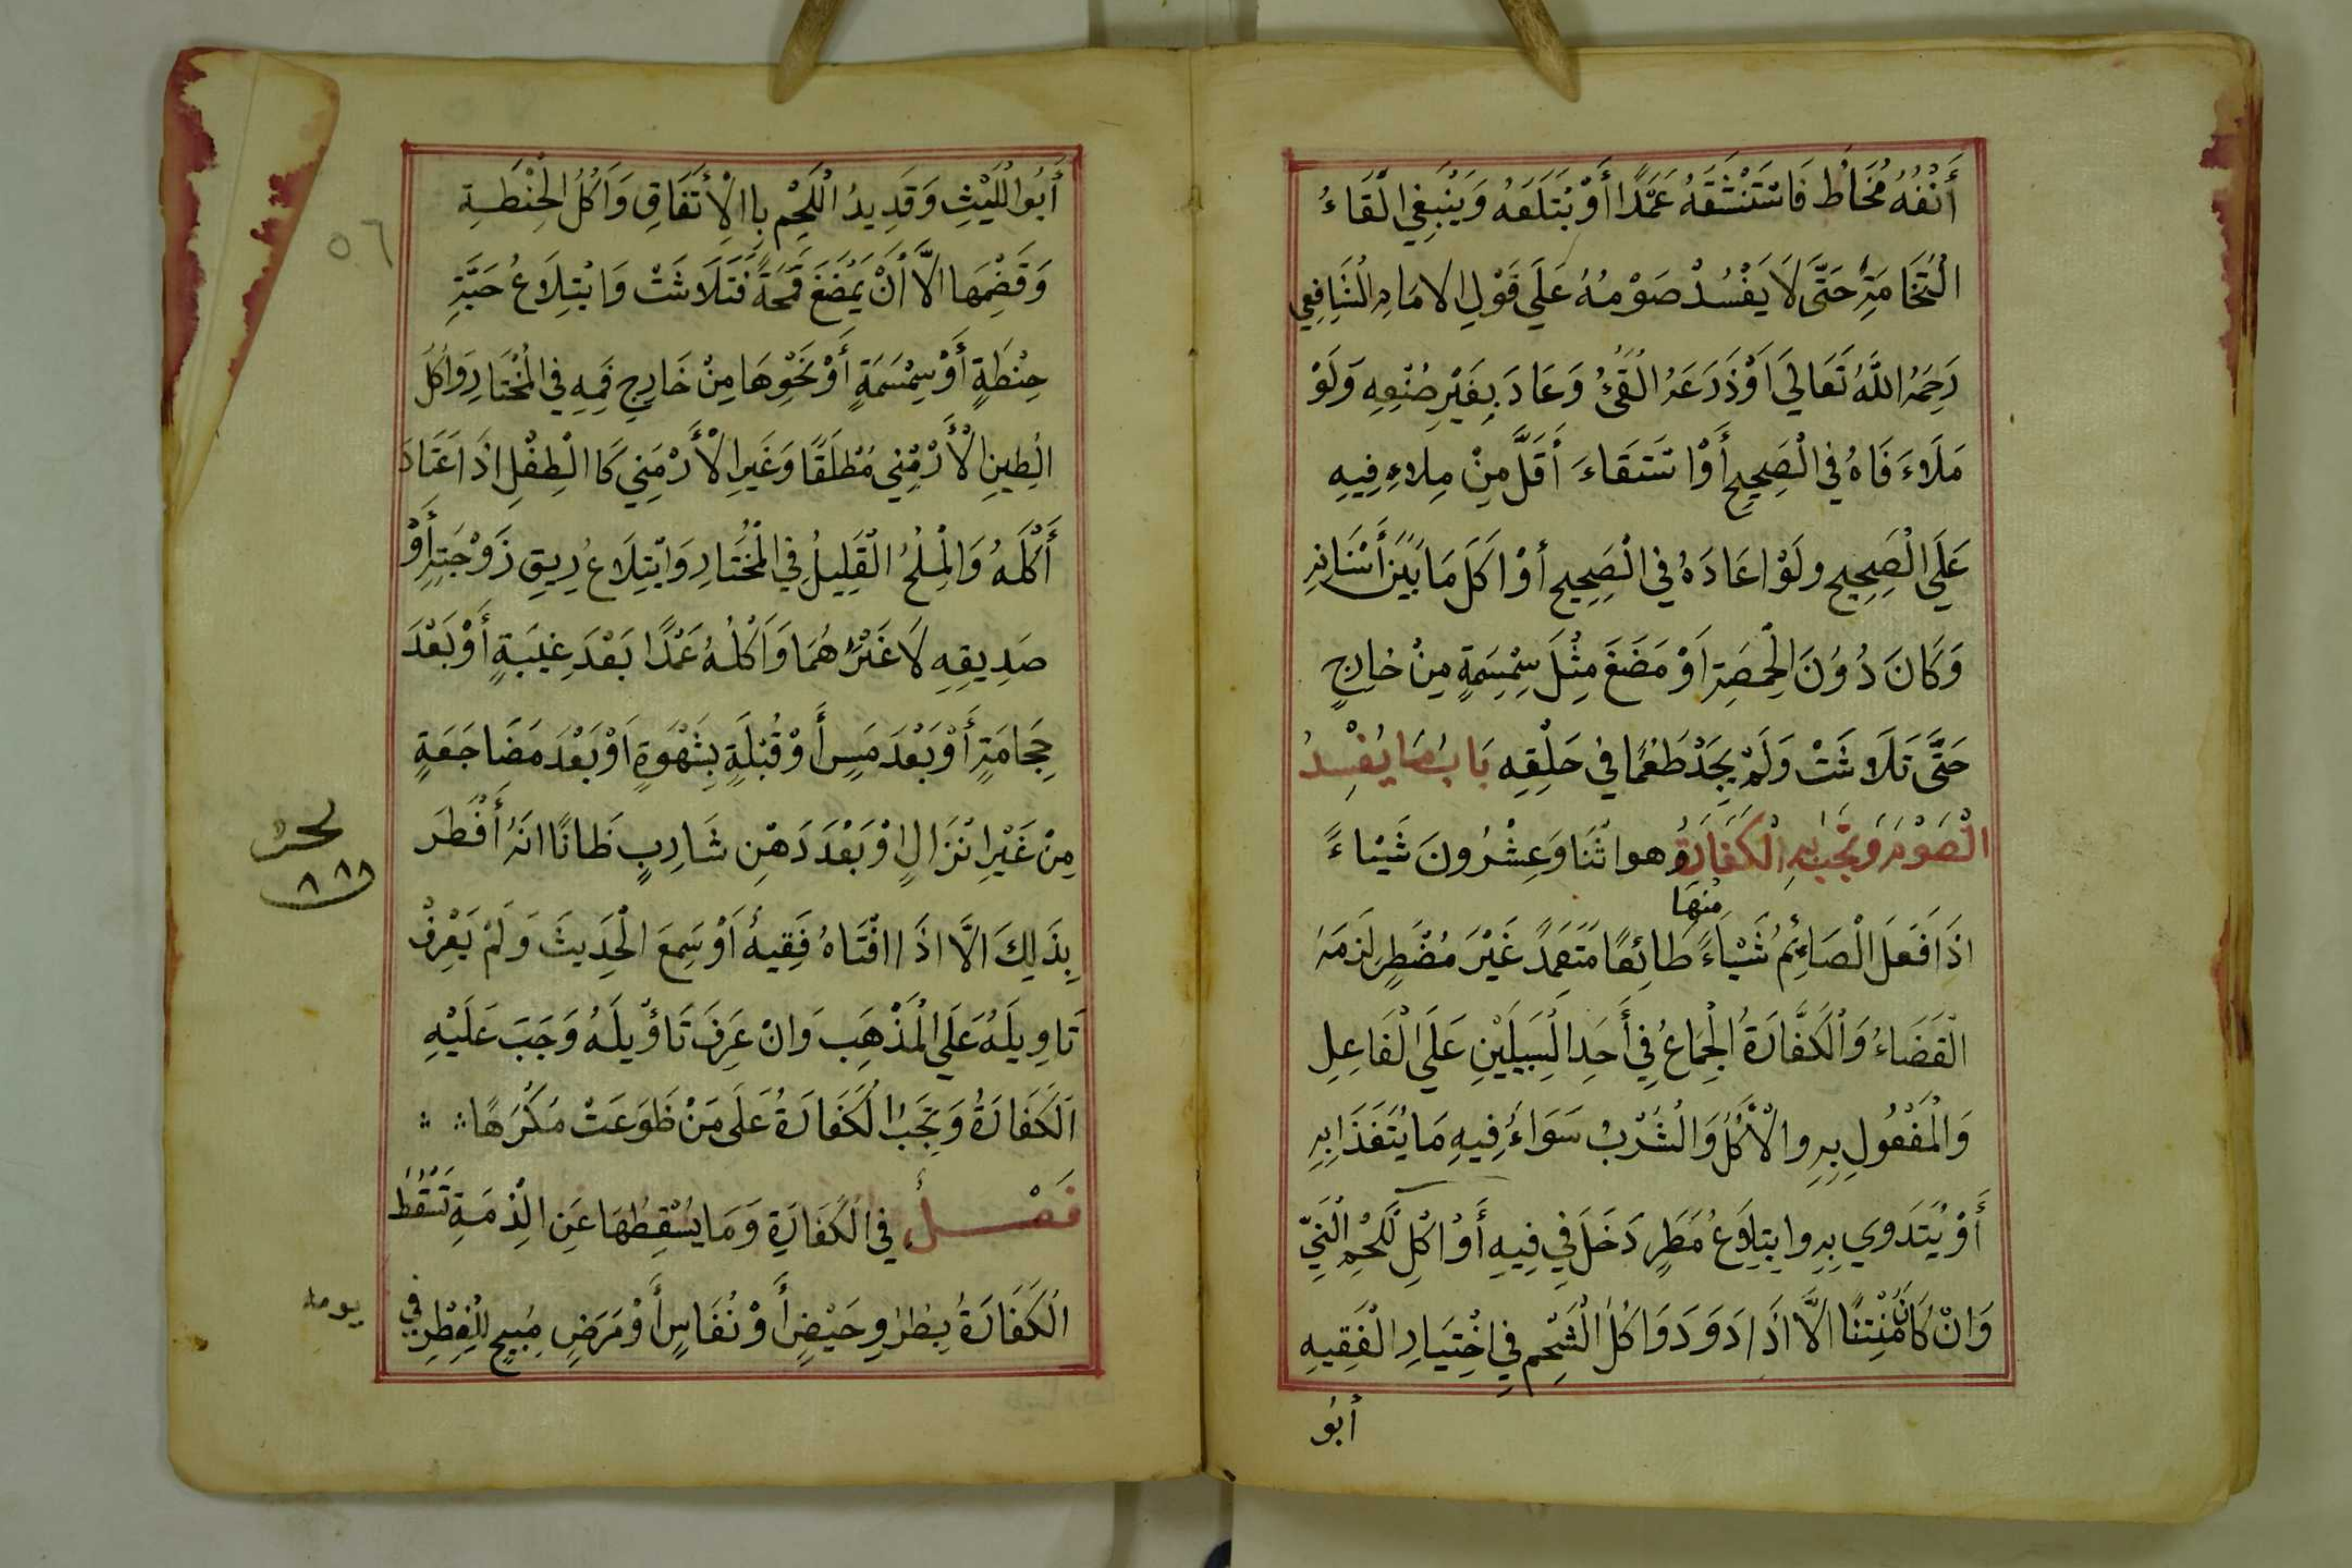 أَنْفُهُ مُخَاطٌ فَاسْتَنْشَقَهُ عَمَدًا أَوْ بْتَلَعَهُ وَيَنْبَغِي الْقَاءُ
الْنُخَامَةِ حَتَّى لَا يَفْسُدْ صَوْمُهُ عَلَي قَوْلِ الامَامِ الْشَافِعِي
رَحِمَهُ اللَّهُ تَعَالَي اَوْ ذَرَعَهُ الْقَيُّ وَعَادَ بِغَيْرِ صُنْعِهِ وَلَوْ
مَلَاءَ فَاهُ فِي الْصَحِيحِ أَوْ اسْتَقَاءَ أَقَلَّ مِنْ مِلاءِ فِيهِ
عَلَي الْصَحِيحِ ولَوْ اعَادَهُ فِي الْصَحِيحِ أوْ اَكَلَ مَا بَيْنَ أَسْنَانِهِ
وَكَانَ دُوْنَ الْحِمَصَةِ اَوْ مَضَغَ مِثْلَ سِمْسِمَةٍ مِنْ خَارِجٍ
حَتَّى تَلَاشَتْ وَلَمْ يَجَدْ طَعْمًا فِي حَلْقِهِ بَابُ مَا يُفْسِدُ
الْصَوْمَ وَتَجِبُ بِهِ الْكَفَارَةُ وهو اثْنَا وَعِشْرُونَ شَيْاءً
مِنْهَا
اذَا فَعَلَ الْصَائِمُ شَيْاءً طَائِعًا مُتَعَمِدً غَيْرَ مُضْطَرٍ لَزِمَهُ
الْقَضَاءُ وَالْكَفَّارَةُ الْجِمَاعُ فِي أَحَدِ الْسَبِيلَيْنِ عَلَي الْفَاعِلِ
وَالْمَفْعُولِ بِهِ والْأَكْلُ وَالْشَرْبُ سَوَاءُ فِيهِ مَا يُتَغَذَا بِهِ
أَوْ يُتَدَوي بِهِ وابِتِلَاعُ مَطَرٍ دَخَلَ فِي فِيهِ أَوْ اكْلِ لَّحْمِ الْنَيِّ
وَانْ كَانَ مُنْتِنًا الَّا اذَا دَوَدَ وَاكْلُ الْشَحْمِ فِي اخْتِيَارِ الْفَقِيهِ
أبُو
أَبُو الْلَيْثِ وَقَدِيدُ الْلَحْمِ بِا الْأِتَفَاقِ وَاَكْلُ الْحِنْطَةِ
وَقَضْمِهَا الَّا أَنْ يَمْضَغَ قَمْحَةً فَتَلَاشَتْ وَابْتِلَاعُ حَبَّةِ
حِنْطَةٍ أَوْ سِمْسَمَةٍ أَوْ نَحْوِهَا مِنْ خَارِجِ فَمِهِ فِي الْمُخْتَارِ وَاكْلُ
الْطِينِ الْأَرْمَنِي مُطْلَقًا وَغَيرِ الْأَرْمَنِي كَا الْطِفْلِ اذَا عْتَادَ
أَكْلَهُ وَالْمِلْحُ الْقَلِيلُ فِي الْمُخْتَارِ وَابْتِلَاعُ رِيقِ زَوْجَتِهِ أَوْ
صَدِيقِهِ لَا غَيْرُهُمَا وَاَكْلُهُ عَمْدًا بَعْدَ غِيبَةٍ أَوْ بَعْدَ
حِجَامَةٍ أَوْ بَعْدَ مَسٍ أَوْ قُبْلَةٍ بِشَهْوَةٍ اَوْ بَعْدَ مَضَاجَعَةٍ
مِنْ غَيْرِ انْزَالٍ اوْ بَعْدَ دَهْنِ شَارِبٍ ظَانًا انَهُ أَفْطَرَ
بِذَلِكَ الَّا اذَا افْتَاهُ فَقِيهُ اَوْ سَمِعَ الْحَدِيثَ وَلَمْ يَعْرِفْ
تَاوِيلَهُ عَلَي الْمَذْهَبِ وَانْ عَرِفَ تَاؤْيلَهُ وَجَبَ عَلَيْهِ
اَلكَفَارَةُ وَتَجِبُ الْكَفَارَةُ عَلَى مَنْ طَوَعَتْ مُكْرَهًا
فَصْلُ فِي الْكَفَارَةِ وَمَا يُسْقِطُهَا عَنِ الْذِمَةِ تَسْقُطُ
الْكَفَارَةُ بِطُرُوِ حَيْضٍ أَوْ نُفَاسٍ أَوْ مَرَضٍ مُبِيحٍ لِلْفِطْرِ فِي
يومه
٥٦